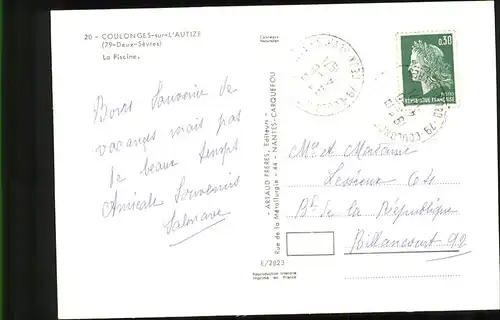 20 - COULONGES-sur-L'AUTIZE
(79-Deux-Sèvres)
La Piscine.
Couleurs
Naturelles
Bons Souvenirs de
vacances mais pas
de beaux temps
Amicale Souvenirs
- ARTAUD FRÈRES, Editeurs -
Rue de la Métallurgie - 44 - NANTES-CARQUEFOU
E/2823
Reproduction interdite
Imprimé en France
0,30
REPUBLIQUE FRANÇAISE
Mr et Madame
Bd de la République
Billancourt 92